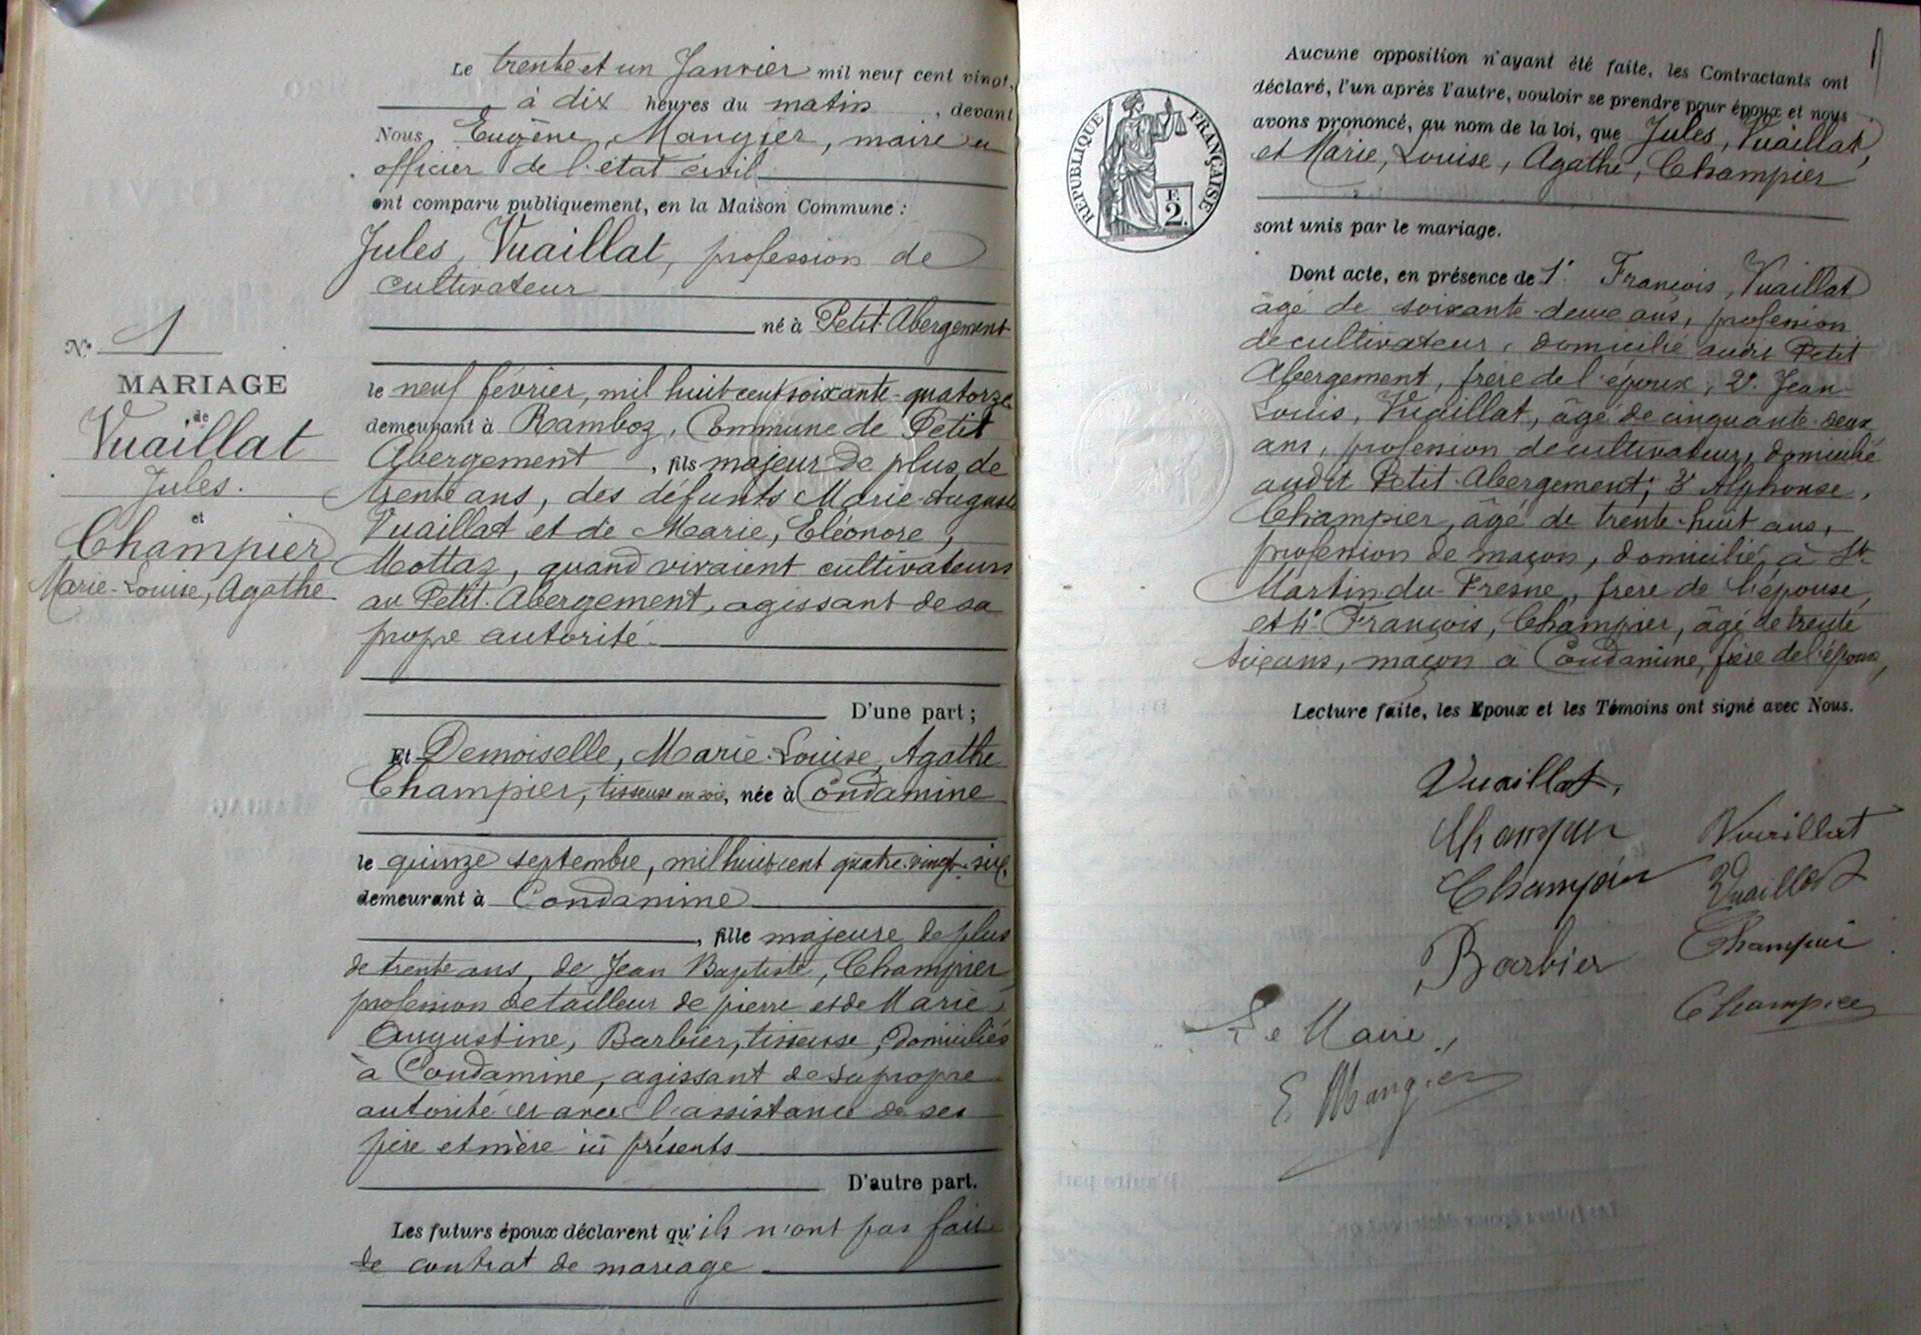 Le trente et un Janvier mil neuf cent vingt,
à dix heures du matin, devant
Nous Eugène, Mangier, maire et
officier de l'état civil
ont comparu publiquement, en la Maison Commune :
Jules, Vuaillat, profession de
cultivateur
né à Petit-Abergement
le neuf février, mil huit cent soixante-quatorze
demeurant à Ramboz, Commune de Petit
Abergement, fils majeur de plus de
trente ans, des défunts Marie-Auguste
Vuaillat et de Marie, Eléonore,
Mottaz, quand vivaient cultivateurs
au Petit-Abergement, agissant de sa
propre autorité.
D'une part ;
N° 1
MARIAGE
de
Vuaillat
Jules.
et
Champier
Marie-Louise, Agathe
Et Demoiselle, Marie-Louise, Agathe
Champier, tisseuse en soie, née à Condamine
le quinze septembre, mil huit cent quatre-vingt-six,
demeurant à Condamine
, fille majeure de plus
de trente ans, de Jean Baptiste, Champier
profession de tailleur de pierre et de Marie
Augustine, Barbier, tisseuse, domiciliés
à Condamine, agissant de sa propre
autorité et avec l'assistance de ses
père et mère ici présents
D'autre part.
Les futurs époux déclarent qu'ils n'ont pas fait
de contrat de mariage
1
Aucune opposition n'ayant été faite, les Contractants ont
déclaré, l'un après l'autre, vouloir se prendre pour époux et nous
avons prononcé, au nom de la loi, que Jules, Vuaillat,
et Marie, Louise, Agathe, Champier
sont unis par le mariage.
RÉPUBLIQUE FRANÇAISE
F.
2
Dont acte, en présence de 1° François, Vuaillat
âgé de soixante-deux ans, profession
de cultivateur, domicilié audit Petit
Abergement, frère de l'époux, 2° Jean-
Louis, Vuaillat, âgé de cinquante-deux
ans, profession de cultivateur, domicilié
audit Petit-Abergement; 3° Alphonse,
Champier, âgé de trente-huit ans,
profession de maçon, domicilié à St
Martin-du-Fresne, frère de l'épouse,
et 4° François, Champier, âgé de trente
six ans, maçon à Condamine, frère de l'épouse,
Lecture faite, les Epoux et les Témoins ont signé avec Nous.
Vuaillat,
Champier Vuaillat
Champier Vuaillat
Barbier Champier
Champier
Le Maire,
E. Mangier